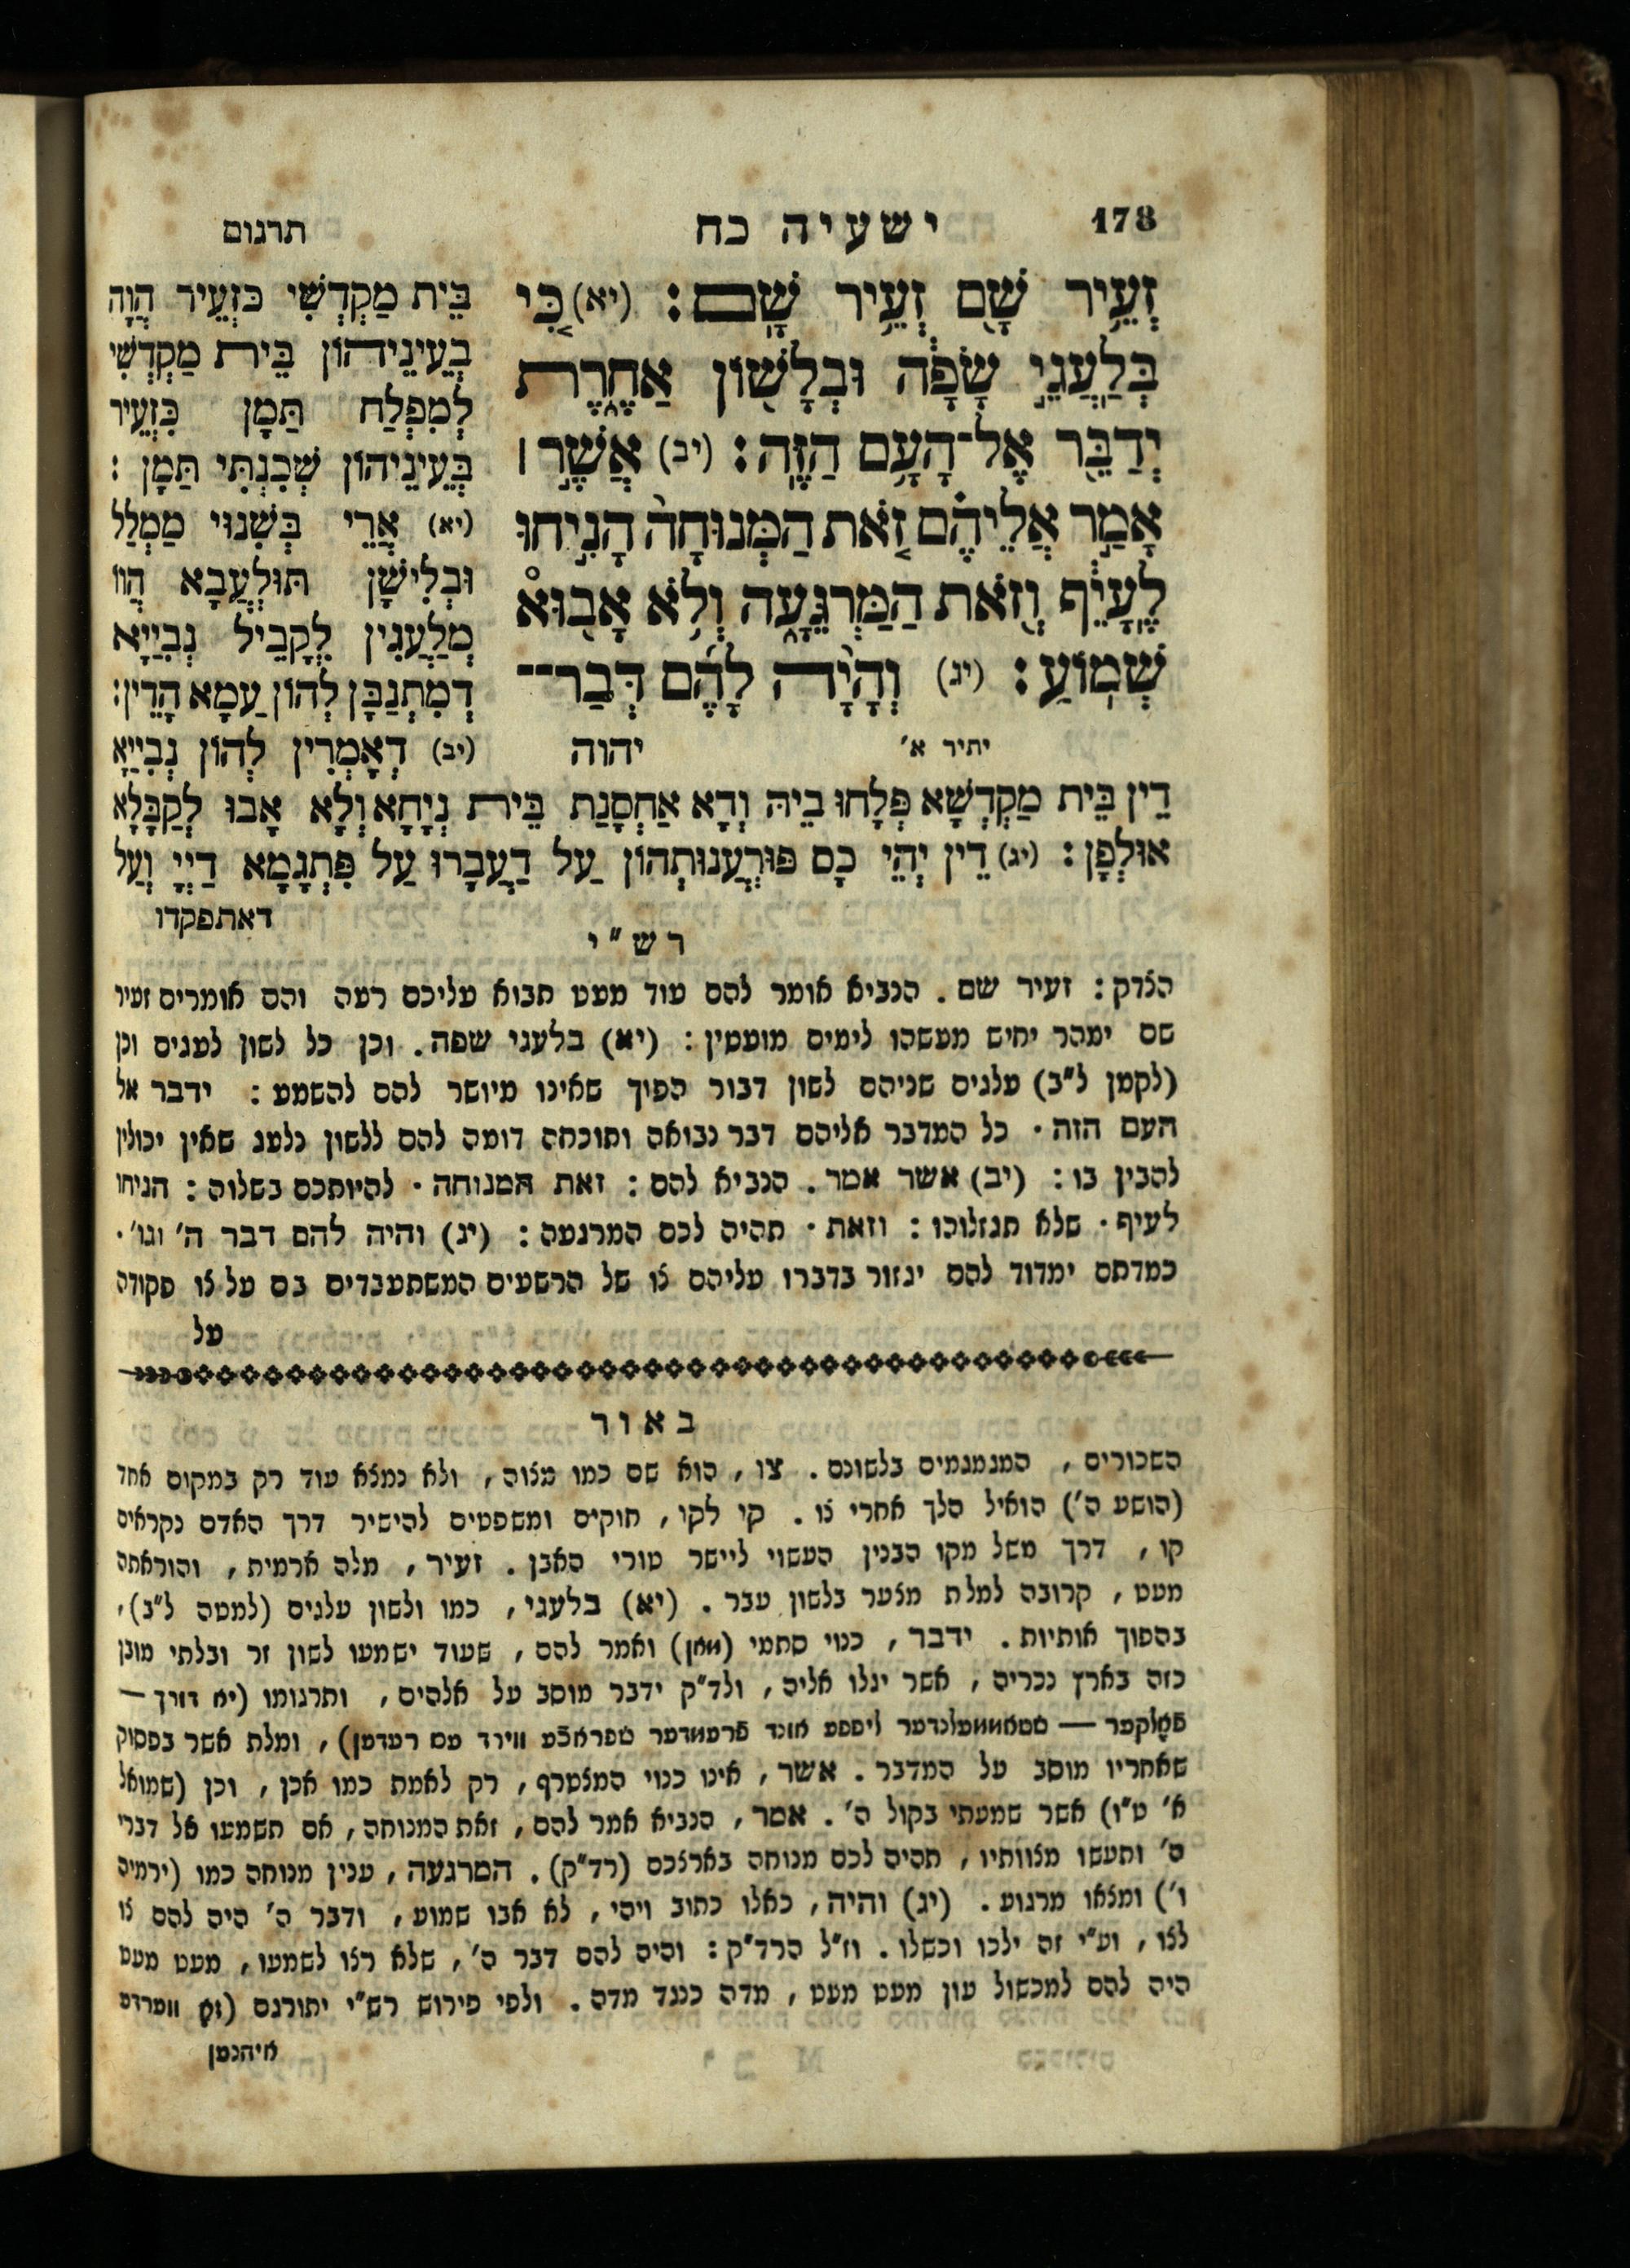 178
ישעיה כח
תרגום
זְעֵ֥יר שָׁ֖ם זְעֵ֥יר שָֽׁם׃ (יא) כִּ֚י
בְּלַֽעֲגֵ֣י שָׂפָ֔ה וּבְלָשׁ֖וֹן אַחֶ֑רֶת
יְדַבֵּ֖ר אֶל־הָעָ֥ם הַזֶּֽה׃ (יב) אֲשֶׁ֣ר ׀
אָמַ֣ר אֲלֵיהֶ֗ם זֹ֤את הַמְּנוּחָה֙ הָנִ֣יחוּ
לֶֽעָיֵ֔ף וְזֹ֖את הַמַּרְגֵּעָ֑ה וְלֹ֥א אָב֖וּא
שְׁמֽוֹעַ׃ (יג) וְהָיָ֨ה לָהֶ֜ם דְּבַר־
יתיר א׳
יהוה
בֵּית מַקְדְשִׁי כִּזְעֵיר הֲוָה
בְעֵינֵיהוֹן בֵּית מַקְדְשִׁי
לְמִפְלַח תַּמָן כִּזְעֵיר
בְּעֵינֵיהוֹן שְׁכִנְתִּי תַּמָן :
(יא) אֲרֵי בְּשִׁנוּי מַמְלַל
וּבְלִישָׁן תּוּלְעֲבָא הֲווֹ
מְלַעֲגִין לָקֳבֵיל נְבִיַיָא
דְמִתְנַבָּן לְהוֹן עַמָא הָדֵין:
(יב) דְאָמְרִין לְהוֹן נְבִיַיָא
דֵין בֵּית מַקְדְשָׁא פְּלָחוּ בֵיהּ וְדָא אַחְסָנַת בֵּית נְיָחָא וְלָא אָבוּ לְקַבָּלָא
אוּלְפָן : (יג) דֵין יְהֵי כָם פּוּרְעֲנוּתְהוֹן עַל דַעֲבָרוּ עַל פִּתְגָמָא דַיְיָ וְעַל
דאתפקדו
רש״י
הצדק : זעיר שם . הנביא אומר להם עוד מעט תבוא עליכם רעה והם אומרים זעיר
שם ימהר יחיש מעשהו לימים מועטין : (יא) בלעגי שפה . וכן כל לשון לעגים וכן
(לקמן ל״ב) עלגים שניהם לשון דבור הפוך שאינו מיושר להם להשמע : ידבר אל
העם הזה · כל המדבר אליהם דבר נבואה ותוכחה דומה להם ללשון נלעג שאין יכולין
להבין בו : (יב) אשר אמר . הנביא להם : זאת המנוחה · להיותכם בשלוה : הניחו
לעיף · שלא תגזלוהו : וזאת · תהיה לכם המרגעה : (יג) והיה להם דבר ה׳ וגו׳ ·
כמדתם ימדוד להם יגזור בדברו עליהם צו של הרשעים המשתעבדים בם על צו פקודה
על
באור
השכורים , המגמגמים בלשונם . צו , הוא שם כמו מצוה , ולא נמצא עוד רק במקום אחד
(הושע ה׳) הואיל הלך אחרי צו . קו לקו , חוקים ומשפטים להישיר דרך האדם נקראים
קו , דרך משל מקו הבנין העשוי ליישר טורי האבן . זעיר , מלה ארמית , והוראתה
מעט , קרובה למלת מצער בלשון עבר . (יא) בלעגי , כמו ולשון עלגים (למטה ל״ב) ,
בהפוך אותיות . ידבר , כנוי סתמי (מאן) ואמר להם , שעוד ישמעו לשון זר ובלתי מובן
כזה בארץ נכריה , אשר יגלו אליה , ולד״ק ידבר מוסב על אלהים , ותרגומו (יא דורך —
פאָלקער — שטאממעלנדער ליפפע אונד פרעמדער שפראכע ווירד עס רעדען) , ומלת אשר בפסוק
שאחריו מוסב על המדבר . אשר , אינו כנוי המצטרף , רק לאמת כמו אכן , וכן (שמואל
א׳ ט״ו) אשר שמעתי בקול ה׳ . אמר , הנביא אמר להם , זאת המנוחה , אם תשמעו אל דברי
ה׳ ותעשו מצוותיו , תהיה לכם מנוחה בארצכם (רד״ק) . המרגעה , ענין מנוחה כמו (ירמיה
ו׳) ומצאו מרגוע . (יג) והיה , כאלו כתוב ויהי , לא אבו שמוע , ודבר ה׳ היה להם צו
לצו , וע״י זה ילכו וכשלו . וז״ל הרד״ק : והיה להם דבר ה׳ , שלא רצו לשמעו , מעט מעט
היה להם למכשול עון מעט מעט , מדה כנגד מדה . ולפי פירוש רש״י יתורגם (זאָ ווערדע
איהנען